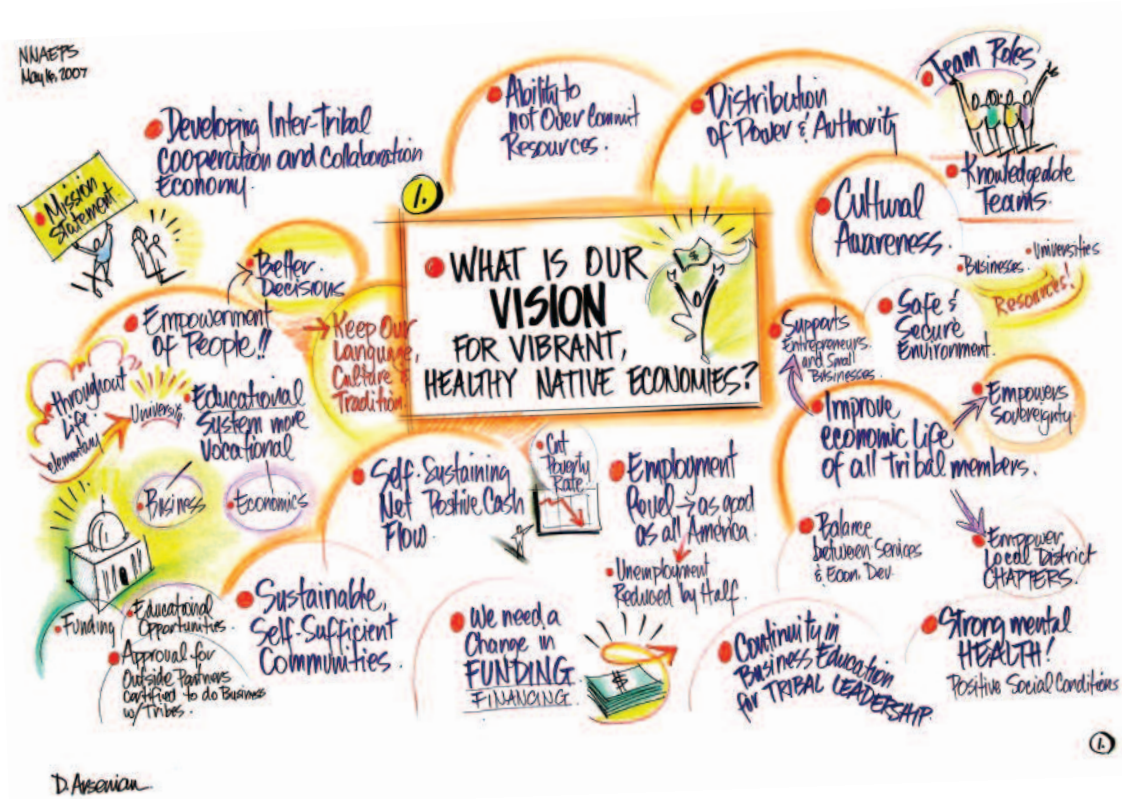 NNAEPS
May 16, 2007
• Developing Inter-Tribal
cooperation and collaboration
Economy.
• Ability to
not Over Commit
Resources.
• Distribution
of Power & Authority
• Team Roles
• Mission
Statement
1.
• Knowledgeable
Teams.
• Cultural
Awareness.
• Universities
• Businesses.
Resources!
• WHAT IS OUR
VISION
FOR VIBRANT,
HEALTHY NATIVE ECONOMIES?
$
• Better
Decisions
• Empowerment
of People!!
→ Keep Our
Language,
Culture &
Tradition.
• Supports
Entrepreneurs
and Small
Businesses.
• Safe &
Secure
Environment.
• throughout
Life
elementary
University
• Educational
System more
Vocational
• Business
• Economics
• Empowers
Sovereignty
• Improve
economic life
of all Tribal members.
• Self-Sustaining
Net Positive Cash
Flow.
• Cut
Poverty
Rate
• Employment
Level → as good
as all America.
• Unemployment
Reduced by Half.
• Balance
between Services
& Econ. Dev.
• Empower
Local District
CHAPTERS.
• Funding
• Educational
Opportunities.
• Approval for
Outside Partners
certified to do Business
w/Tribes.
• Sustainable,
Self-Sufficient
Communities.
• We need a
Change in
FUNDING
FINANCING.
$
• Continuity in
Business Education
for TRIBAL LEADERSHIP.
• Strong mental
HEALTH!
Positive Social Conditions
1.
D. Arsenian